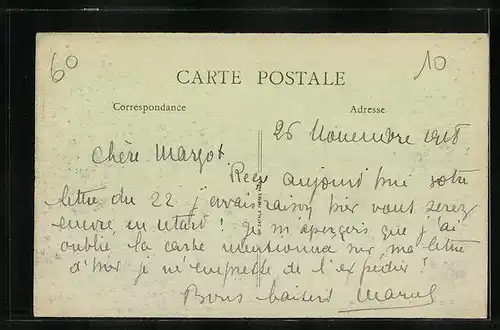 60
10
CARTE POSTALE
Correspondance
Adresse
26 Novembre 1918
Chère Margot
Reçu aujourd'hui votre
lettre du 22 j'avais raison hier vous serez
encore en retard ! Je m'aperçois que j'ai
oublié la carte mentionnée sur ma lettre
d'hier je m'empresse de l'expédier !
Bons baisers Marcel